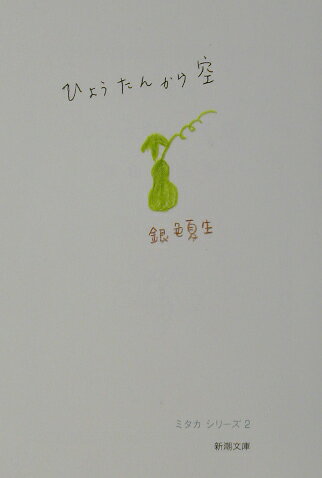 ひょうたんから空
銀色夏生
ミタカシリーズ2
新潮文庫